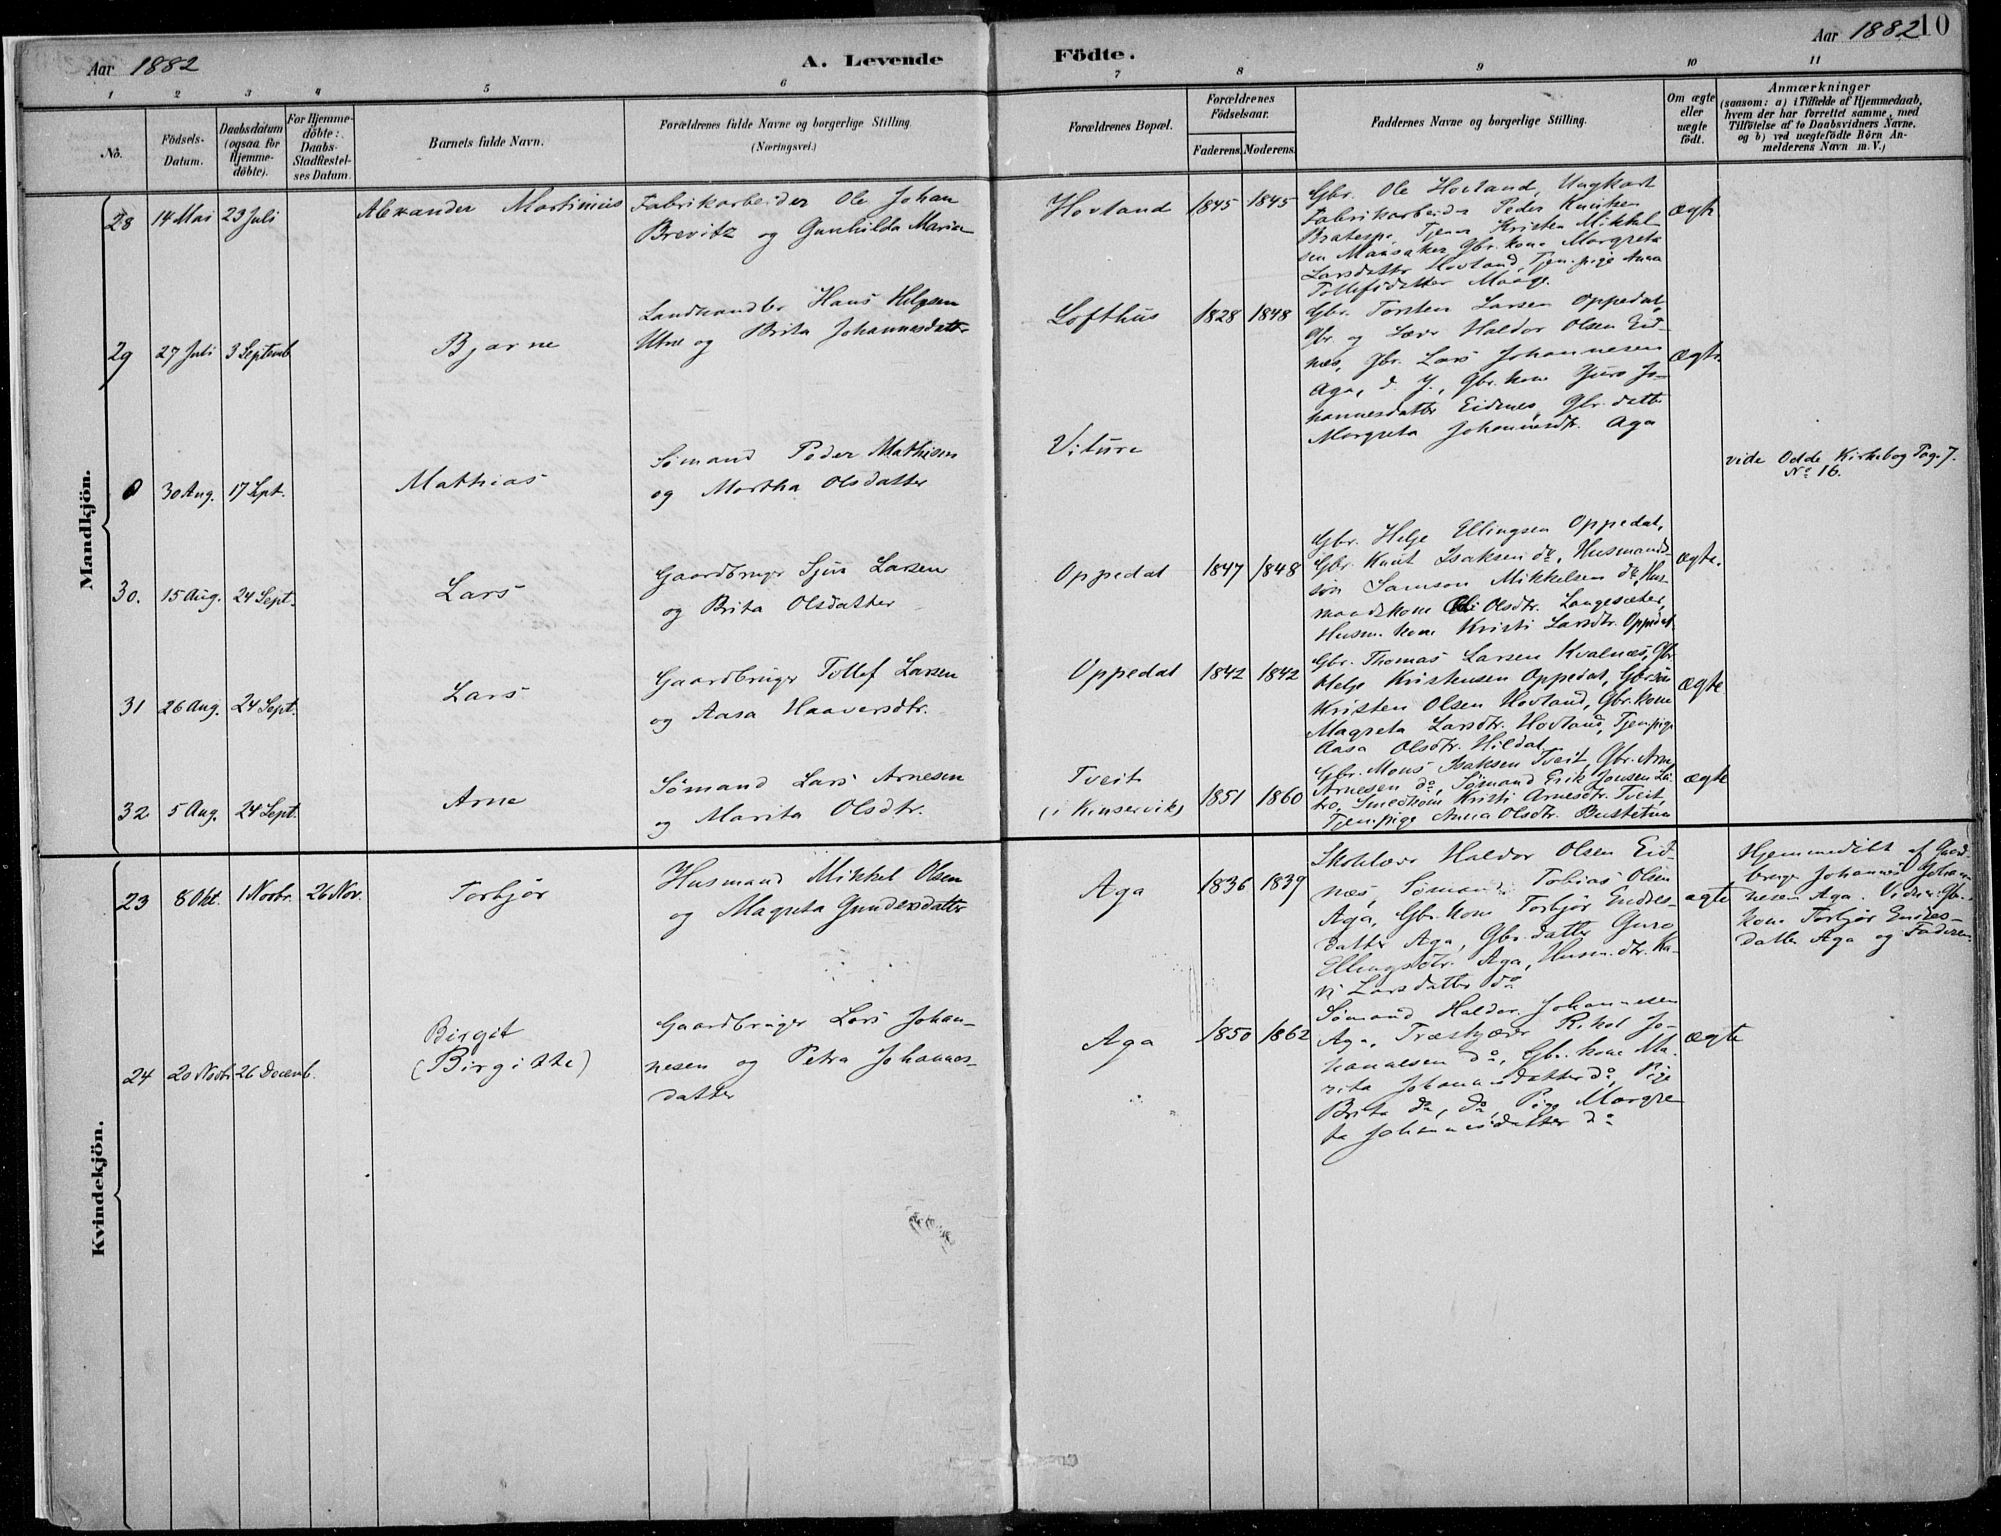 Aar 1882
A. Levende
Födte.
Aar 1882
10
1 2 3 4 5 6 7 8 9 10 11
No.
Födsels-
Datum.
Daabsdatum
(ogsaa for
Hjemme-
döbte).
For Hjemme-
döbte:
Daabs-
Stadfæstel-
ses Datum.
Barnets fulde Navn.
Forældrenes fulde Navne og borgerlige Stilling.
(Næringsvei.)
Forældrenes Bopæl.
Forældrenes
Födselsaar.
Faderens. Moderens.
Faddernes Navne og borgerlige Stilling.
Om ægte
eller
uægte
födt.
Anmærkninger
(saasom: a) i Tilfælde af Hjemmedaab,
hvem der har forrettet samme, med
Tilföielse af to Daabsvidners Navne,
og b) ved uægtefödte Börn An-
melderens Navn m. V.)
Mandkjön.
28 14 Mai 23 Juli
Alexander Martinius
Fabrikarbeider Ole Johan
Brevitz og Gunhilda Maria
Hovland
1845 1845
Gbr. Ole Hovland, Ungkarl
Fabrikarbeider Peder Knutsen
Bratespe, Tjener Kristen Mikkel-
sen Maasaker, Gbr. kone Margreta
Larsdatter Hovland, Tjen.pige Anna
Tollefsdatter Maage.
ægte
29 27 Juli 3 Septemb
Bjarne
Landhandler Hans Helgesen
Utne og Brita Johannesdatter
Lofthus
1828 1848
Gbr. Torsten Larsen Oppedal,
Gbr. og Lærer Haldor Olsen Eid-
næs, Gbr. Lars Johannesen
Aga, d. y., Gbr. kone Guro Jo-
hannesdatter Eidnes, Gbr. datter
Margreta Johannesdtr. Aga
ægte
0 30 Aug. 17 Sept.
Mathias
Sømand Peder Mathisen
og Martha Olsdatter
Viture
vide Odde Kirkebog Pag. 7.
No 16.
30. 15 Aug. 24 Sept.
Lars
Gaardbruger Sjur Larsen
og Brita Olsdatter
Oppedal
1847 1848
Gbr. Helje Ellingsen Oppedal,
Gbr. Knut Isaksen do, Husmands-
søn Samson Mikkelsen do, Hus-
mandskone Olsdtr. Langesæter,
Husm. kone Kristi Larsdtr. Oppedal
ægte.
31 26 Aug. 24 Sept.
Lars
Gaardbruger Tollef Larsen
og Aasa Haaversdtr.
Oppedal
1842 1842
Gbr. Thomas Larsen Kvalnæs, Gbr.
Helje Kristensen Oppedal, Gbr. søn
Kristen Olsen Hovland, Gbr. kone
Magreta Larsdtr. Hovland, Tjen.pige
Aasa Olsdtr. Hildal
ægte
32 5 Aug. 24 Sept.
Arne
Sømand Lars Arnesen
og Marita Olsdtr.
Tveit
(i Kinservik)
1851 1860
Gbr. Mons Isaksen Tveit, Gbr. Arne
Arnesen do, Sømand Erik Jonsen Lu-
tro, Smedkone Kristi Arnesdtr. Tveit,
Tjen.pige Anna Olsdtr. Bustetun
ægte
Kvindekjön.
23 8 Okt. 1 Novbr. 26 Nov.
Torbjør
Husmand Mikkel Olsen
og Magreta Gundersdatter
Aga
1836 1839
Skolelærer Haldor Olsen Eid-
næs, Sømand Tobias Olsen
Aga, Gbr. kone Torbjør Endres-
datter Aga, Gbr. datter Guro
Ellingsdtr. Aga, Husm. dtr. Ka-
ri Larsdatter do
ægte
Hjemmedøbt af Gaard-
bruger Johannes Johan-
nesen Aga. Vidner: Gbr.
kone Torbjør Endres-
datter Aga og Faderen
24 20 Novbr 26 Decemb.
Birgit
(Birgitte)
Gaardbruger Lars Johan-
nesen og Petra Johannes-
datter
Aga
1850 1862
Sømand Haldor Johannesen
Aga, Træskjærer Jo-
hannesen do, Gbr. kone Ma-
rita Johannesdatter do, Pige
Brita do, do, Pige Margre-
ta Johannesdatter do
ægte